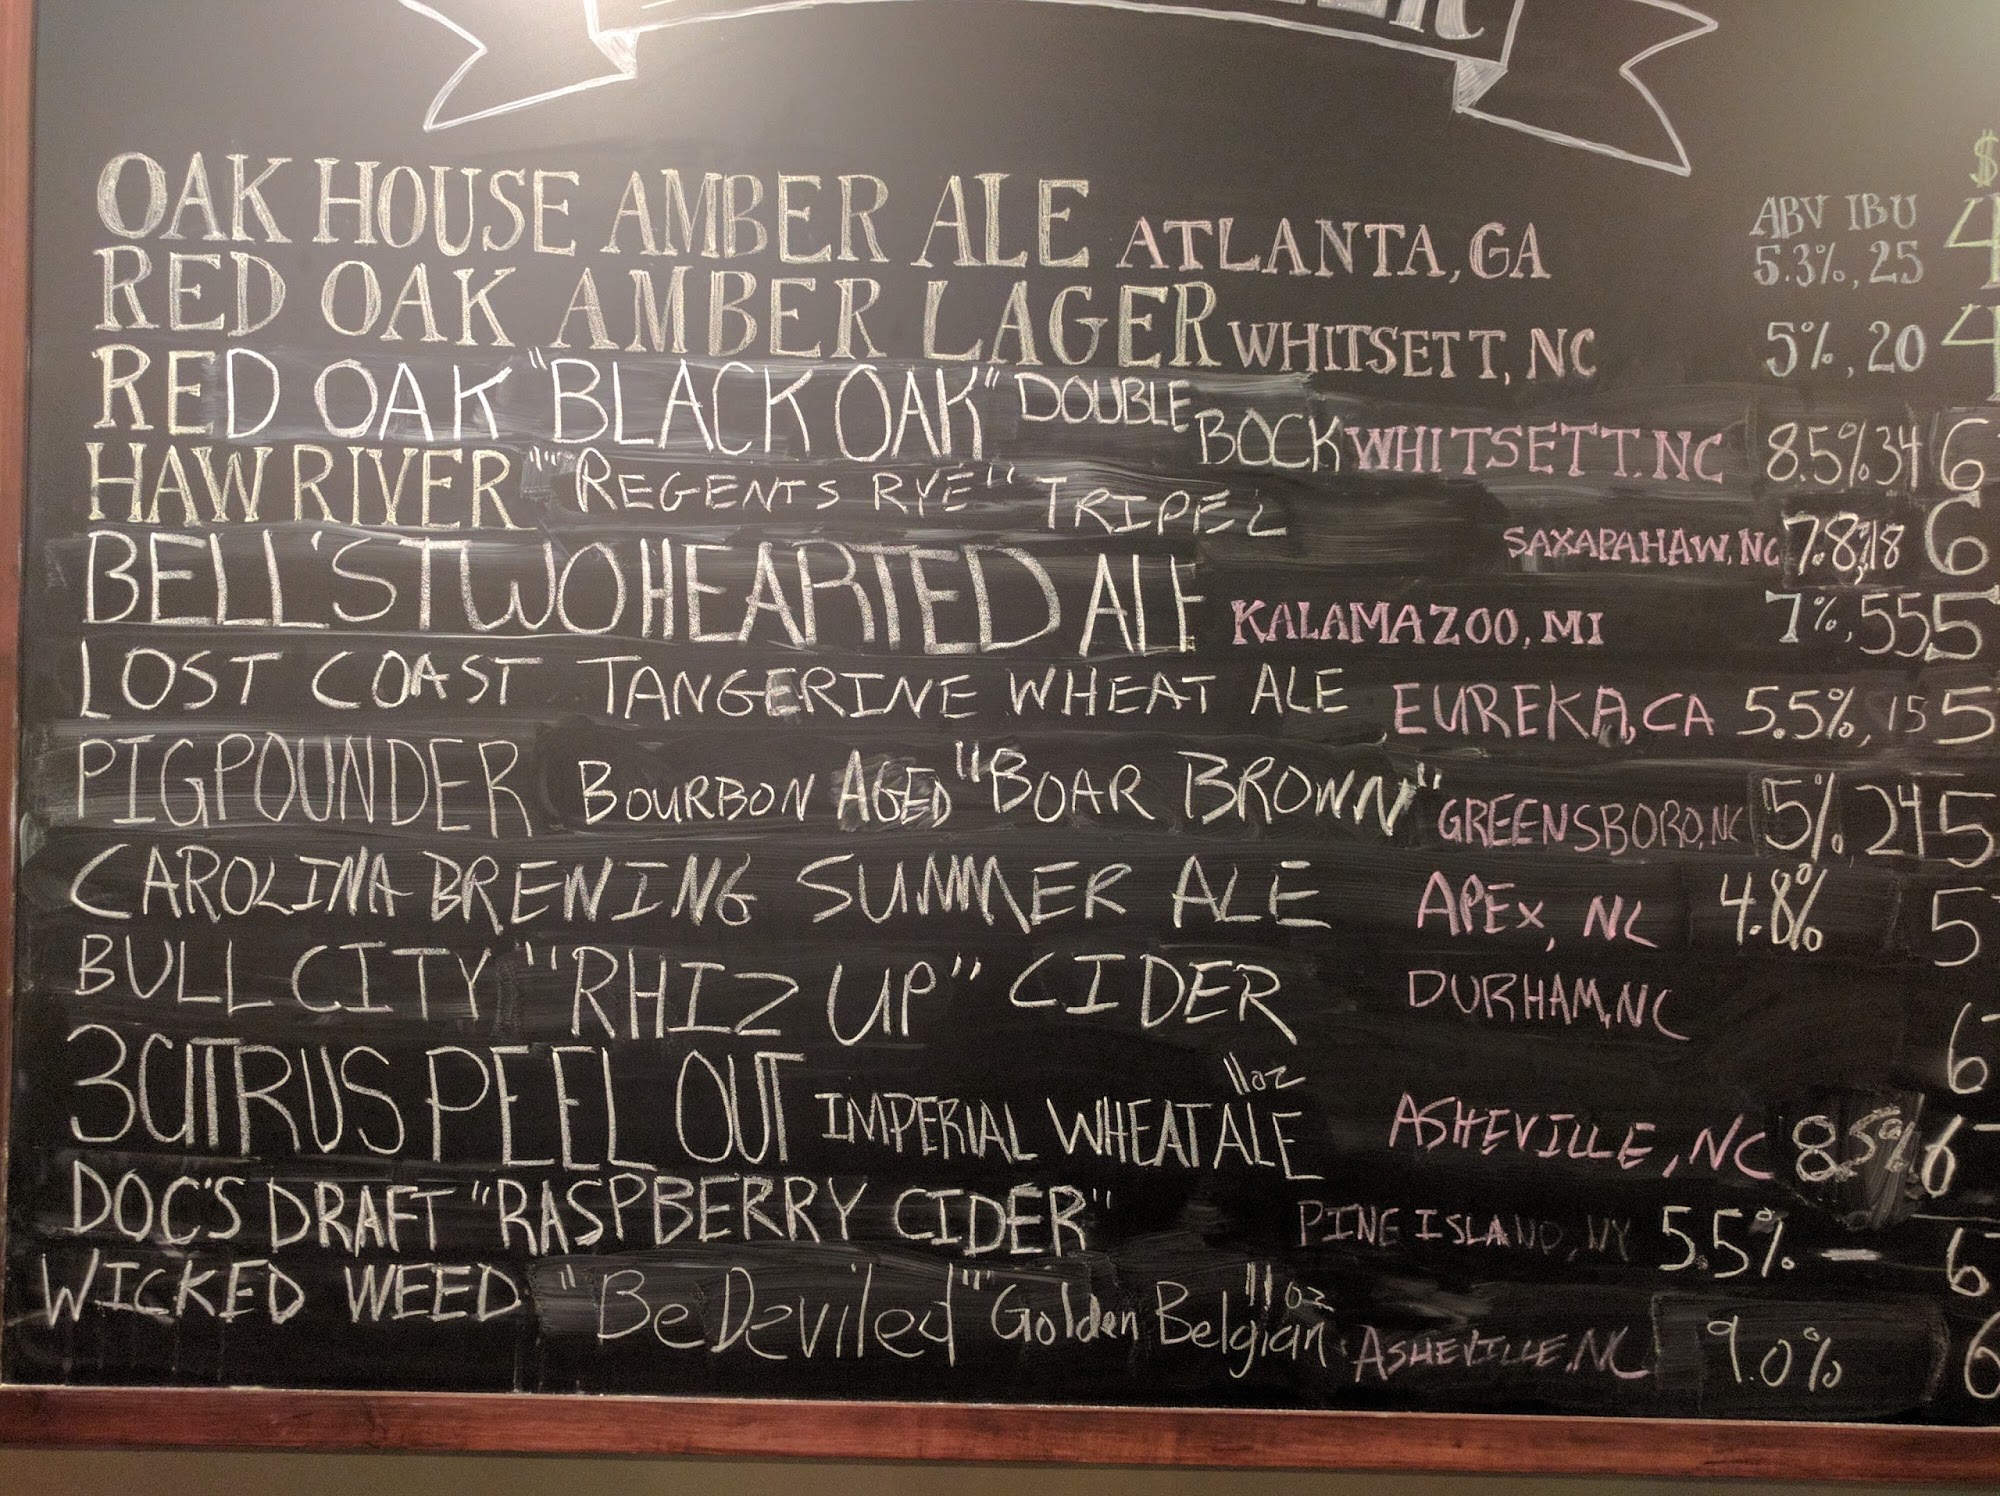 $
ABV IBU
OAK HOUSE AMBER ALE ATLANTA, GA 5.3%, 25 4
RED OAK AMBER LAGER WHITSETT, NC 5%, 20 4
RED OAK "BLACK OAK" DOUBLE BOCK WHITSETT. NC 8.5% 34 6
HAW RIVER "REGENTS RYE" TRIPEL SAXAPAHAW, NC 7.8, 18 6
BELL'S TWO HEARTED ALE KALAMAZOO, MI 7%, 55 5
LOST COAST TANGERINE WHEAT ALE EUREKA, CA 5.5%, 15 5
PIGPOUNDER BOURBON AGED "BOAR BROWN" GREENSBORO, NC 5%, 24 5
CAROLINA BREWING SUMMER ALE APEX, NC 4.8% 5
BULL CITY "RHIZ UP" CIDER DURHAM, NC 6
3 CITRUS PEEL OUT IMPERIAL WHEAT ALE 11oz ASHEVILLE, NC 8.5% 6
DOC'S DRAFT "RASPBERRY CIDER" PINE ISLAND, NY 5.5% — 6
WICKED WEED "BeDeviled" Golden Belgian 11oz ASHEVILLE, NC 9.0% 6